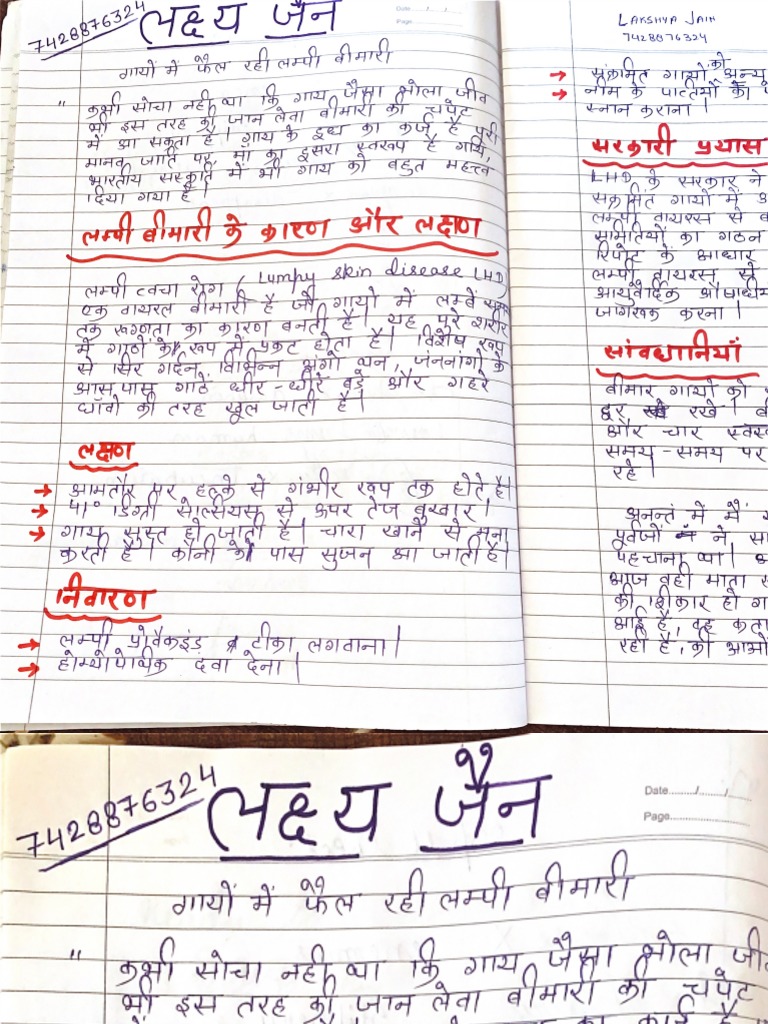 7428876324
लक्ष्य जैन
Date....../....../......
Page..................
गायों में फैल रही लम्पी बीमारी
" कभी सोचा नही था कि गाय जैसा भोला जीव
भी इस तरह की जान लेवा बीमारी की चपेट
में आ सकता है। गाय के दूध का कर्ज है पूरी
मानव जाति पर, माँ का दूसरा स्वरूप है गाय,
भारतीय संस्कृति में भी गाय को बहुत महत्त्व
दिया गया है।
लम्पी बीमारी के कारण और लक्षण
लम्पी त्वचा रोग ( Lumpy skin disease LHD)
एक वायरल बीमारी है जो गायों में लम्बें समय
तक रूगणता का कारण बनती है। यह पुरे शरीर
में गाठों के रूप में प्रकट होता है। विशेष रूप
से सिर गर्दन, विभिन्न अंगो थन, जंननांगो के
आस पास गाठें धीरे-धीरे बड़े और गहरे
घाँवो की तरह खूल जाती है।
लक्षण
→ आमतौर पर हल्के से गंभीर रूप तक होते है।
→ 41° डिग्री सेल्सियस से ऊपर तेज बुखार।
→ गाय सुस्त हो जाती है। चारा खाने से मना
करती है। कानों के पास सुजन आ जाती है।
निवारण
→ लम्पी प्रोवैकइंड़ टीका लगवाना।
→ होम्योपेथिक दवा देना।
LAKSHYA JAIN
7428876324
→ संक्रमित गायों को अन्य
→ नीम के पात्तियों के
स्नान कराना।
सरकारी प्रयास
LHD के सरकार ने
संक्रमित गायों में
लम्पी वायरस से
समितियों का गठन
रिपोर्ट के आधार
लम्पी वायरस से
आयुर्वेदिक
जागरूक करना।
सांवधानियाँ
बीमार गायों को
दूर रखे।
और चार
समय-समय पर
रहे।
अनन्तं में मैं
पूर्वजों ने,
पहचाना था।
आज वही माता
की शिकार हो
आई है, वह
रही है, की
7428876324
लक्ष्य जैन
Date......./......./.......
Page.....................
गायों में फैल रही लम्पी बीमारी
" कभी सोचा नही था कि गाय जैसा भोला
भी इस तरह की जान लेवा बीमारी की चपेट